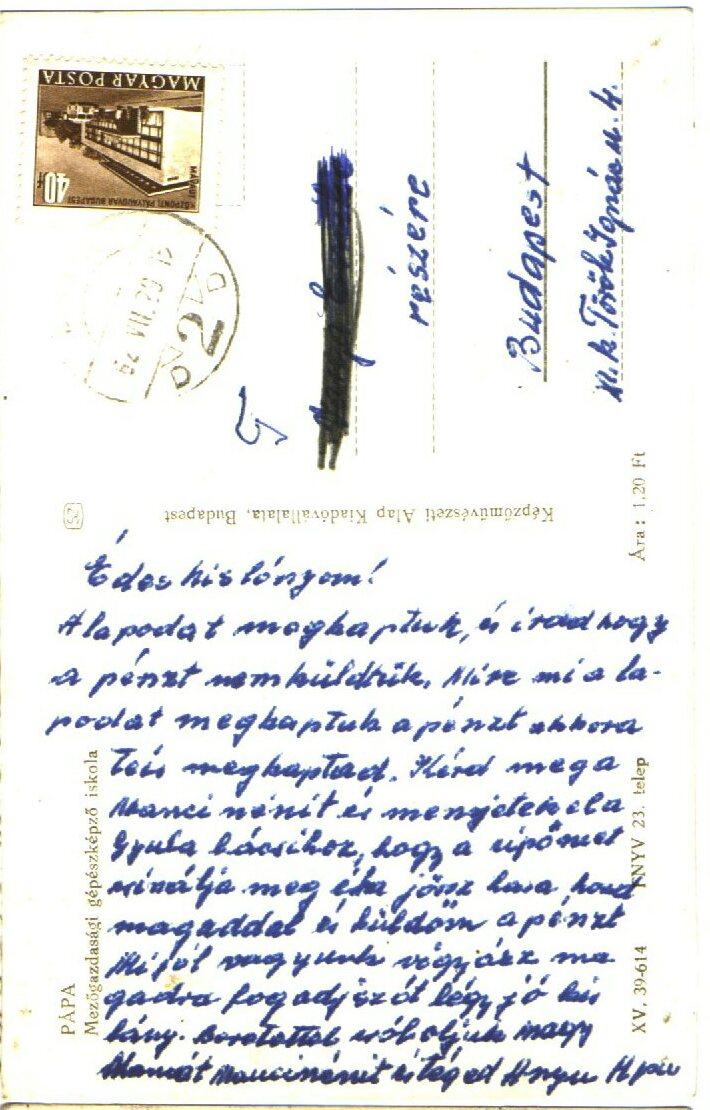 MAGYAR POSTA
MÁVAUT
KÖZPONTI PÁLYAUDVAR BUDAPEST
40f
62 VII. 29. 12
2
részére
Budapest
Török Ignác u. 4.
Ára: 1.20 Ft
Képzőművészeti Alap Kiadóvállalata, Budapest
Édes kis lányom!
A lapodat megkaptuk, és írod hogy
a pénzt nem küldtük. Mire mi a la-
podat megkaptuk a pénzt akkora
te is megkaptad. Kérd meg a
Manci nénit és menjetek el a
Gyula bácsihoz, hogy a cipőmet
csinálja meg és ha jösz haza hozd
magaddal és küldöm a pénzt
Mi jól vagyunk vigyázz ma
gadra fogadj szót légy jó kis
lány. Szeretettel csókoljuk nagy
Mamát Manci nénit és téged Anyu Apu
PÁPA
Mezőgazdasági gépészképző iskola
XV, 39-614 FNYV 23. telep